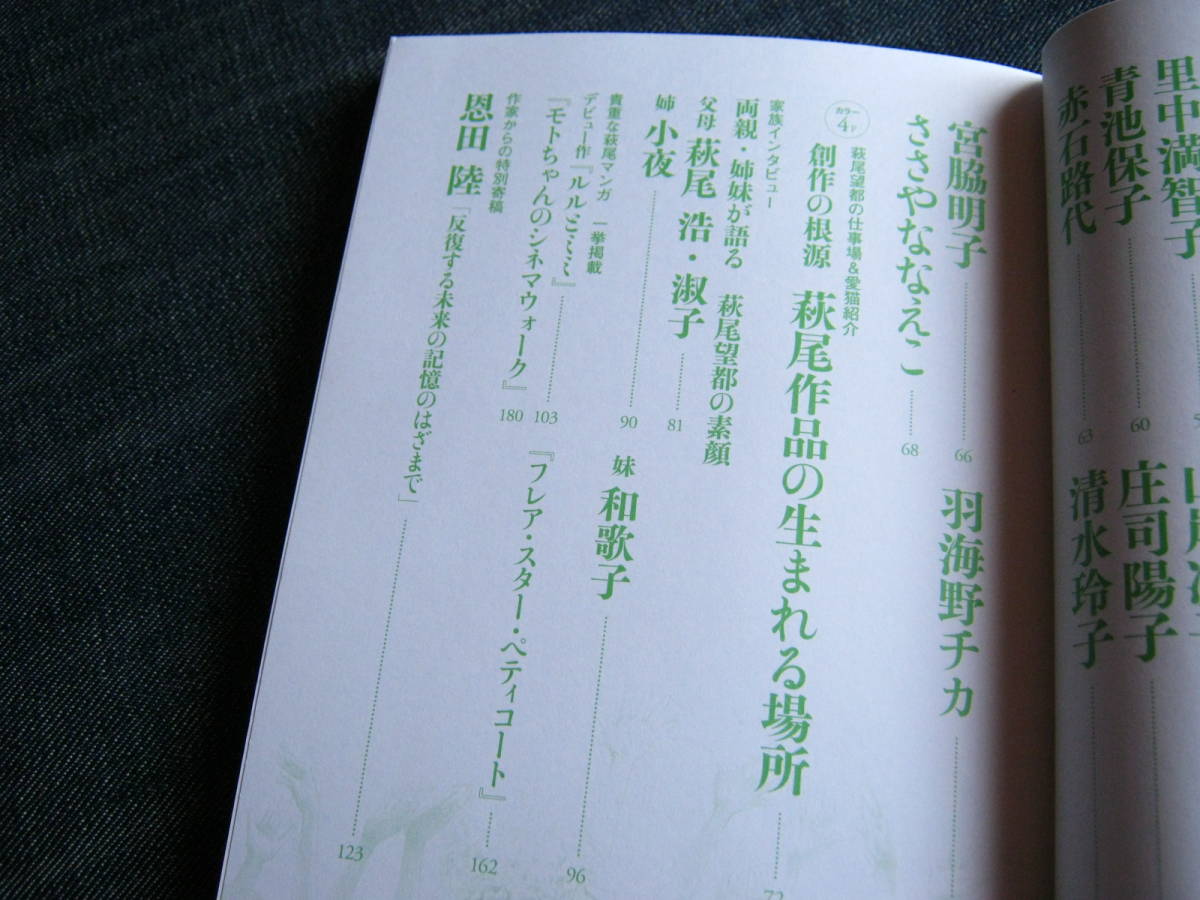 里中満智子
青池保子
60
庄司陽子
赤石路代
63
清水玲子
宮脇明子
66
羽海野チカ
ささやななえこ
68
カラー4P
萩尾望都の仕事場&愛猫紹介
創作の根源 萩尾作品の生まれる場所
72
家族インタビュー
両親・姉妹が語る 萩尾望都の素顔
父母 萩尾 浩・淑子
81
姉 小夜
90
妹 和歌子
96
貴重な萩尾マンガ 一挙掲載
デビュー作『ルルとミミ』
103
『フレア・スター・ペティコート』
162
『モトちゃんのシネマウォーク』
180
作家からの特別寄稿
恩田 陸「反復する未来の記憶のはざまで」
123